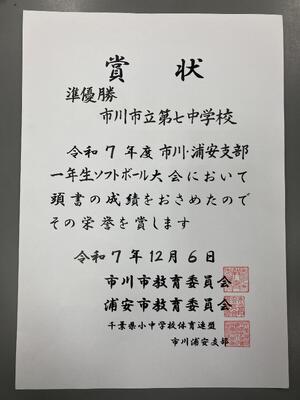 賞状
準優勝
市川市立第七中学校
令和7年度市川・浦安支部
一年生ソフトボール大会において
頭書の成績をおさめたので
その栄誉を賞します
令和7年12月6日
市川市教育委員会
浦安市教育委員会
千葉県小中学校体育連盟
市川浦安支部